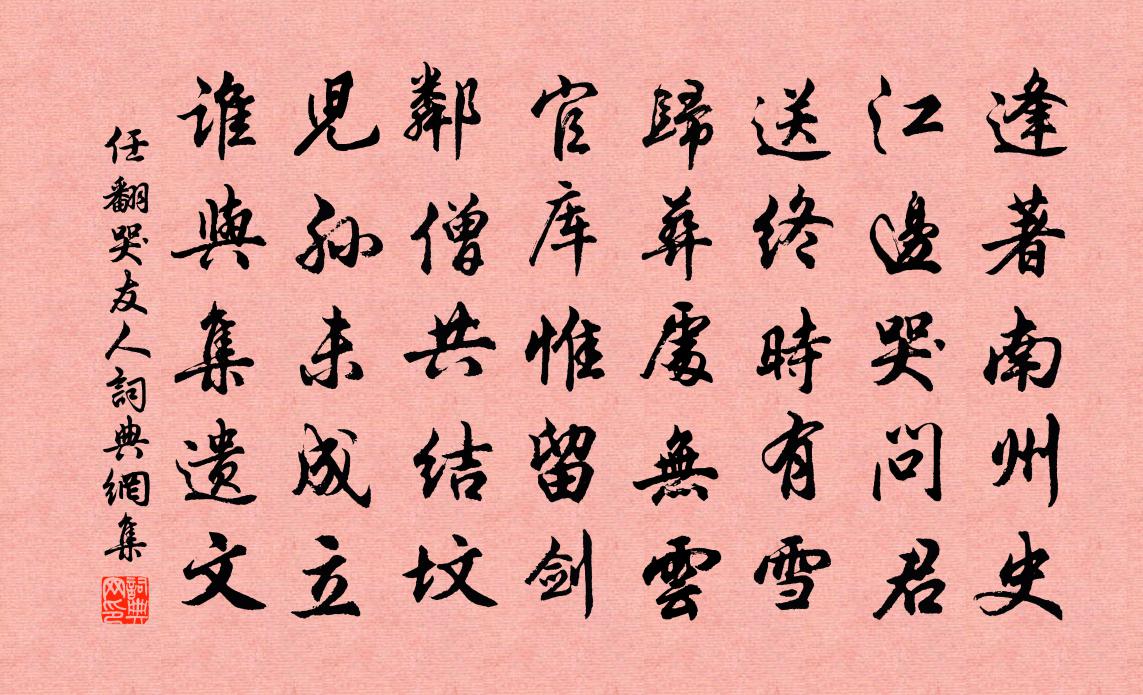 逢著南州史
江邊哭問君
送終時有雪
歸葬處無雲
官库惟留剑
鄰僧共结坟
児孙未成立
谁與集遗文
任翻哭友人詞典網集
詞典网印